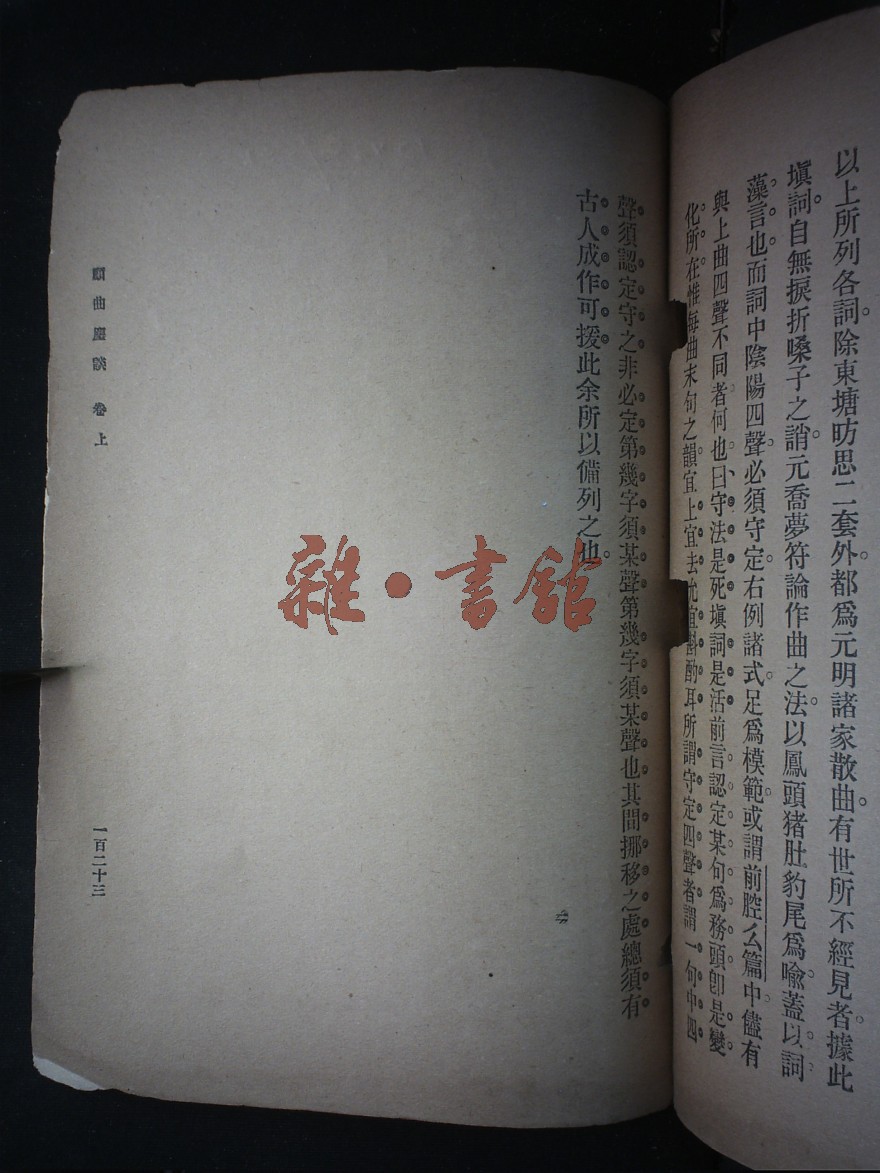 以上所列各詞除東塘昉思二套外都爲元明諸家散曲。有世所不經見者。據此
塡詞。自無捩折嗓子之誚。元喬夢符論作曲之法。以鳳頭猪肚豹尾爲喩。蓋以詞
藻言也。而詞中陰陽四聲。必須守定。右例諸式。足爲模範。或謂前腔么篇中。儘有
與上曲四聲不同者。何也。曰、守法是死塡詞是活前言認定某句爲務頭。卽是變
化所在。惟每曲末句之韻。宜上宜去。尤宜斟酌耳。所謂守定四聲者。謂一句中四
聲須認定守之。非必定第幾字須某聲第幾字須某聲也。其間挪移之處。總須有
古人成作可援。此余所以備列之也。
顧曲麈談 卷上
一百二十三
雜•書館